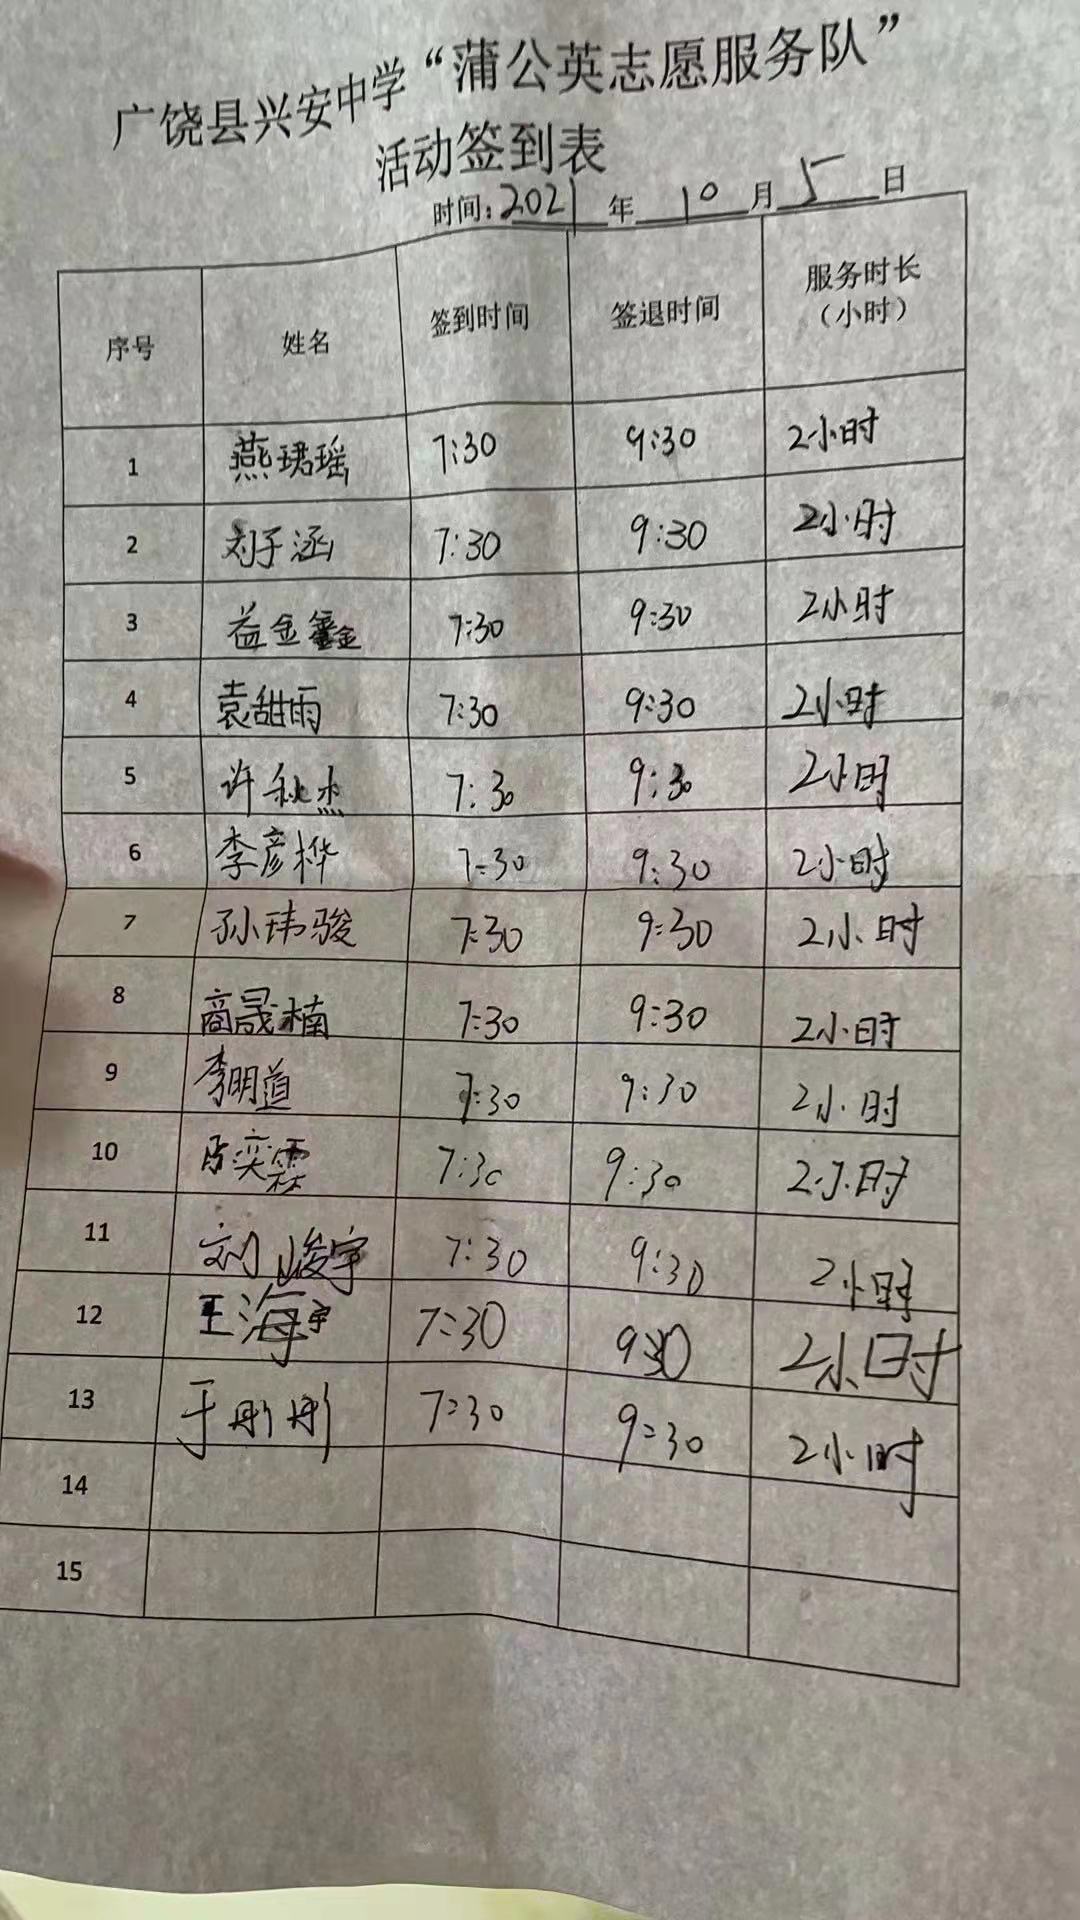 广饶县兴安中学“蒲公英志愿服务队”
活动签到表
时间:2021年10月5日
序号 姓名 签到时间 签退时间 服务时长（小时）
1 燕珺瑶 7:30 9:30 2小时
2 刘子涵 7:30 9:30 2小时
3 益金鑫 7:30 9:30 2小时
4 袁甜雨 7:30 9:30 2小时
5 许秋杰 7:30 9:30 2小时
6 李彦桦 7:30 9:30 2小时
7 孙玮骏 7:30 9:30 2小时
8 商晟楠 7:30 9:30 2小时
9 李明道 7:30 9:30 2小时
10 奕霖 7:30 9:30 2小时
11 刘峻宇 7:30 9:30 2小时
12 王海宇 7:30 9:30 2小时
13 于彤彤 7:30 9:30 2小时
14
15